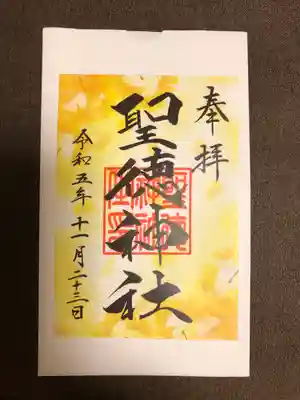 奉拝
聖徳神社
令和五年 十一月二十三日